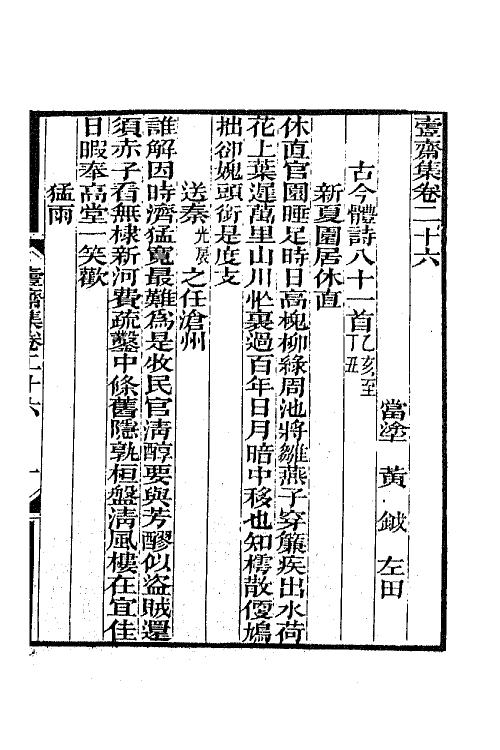 壹齋集卷二十六
當塗 黃 鉞 左田
古今體詩八十一首乙亥至丁丑
新夏園居休直
休直官園睡足時日高槐柳綠周池將雛燕子穿簾疾出水荷
花上葉遲萬里山川忙裏過百年日月暗中移也知樗散僾鳩
拙卻媿頭銜是度支
送秦光扆之任滄州
誰解因時濟猛寬最難爲是牧民官淸醇要與芳醪似盜賊還
須赤子看無棣新河費疏鑿中條舊隱孰桓盤淸風樓在宜佳
日暇奉高堂一笑歡
猛雨
壹齋集卷二十六 一